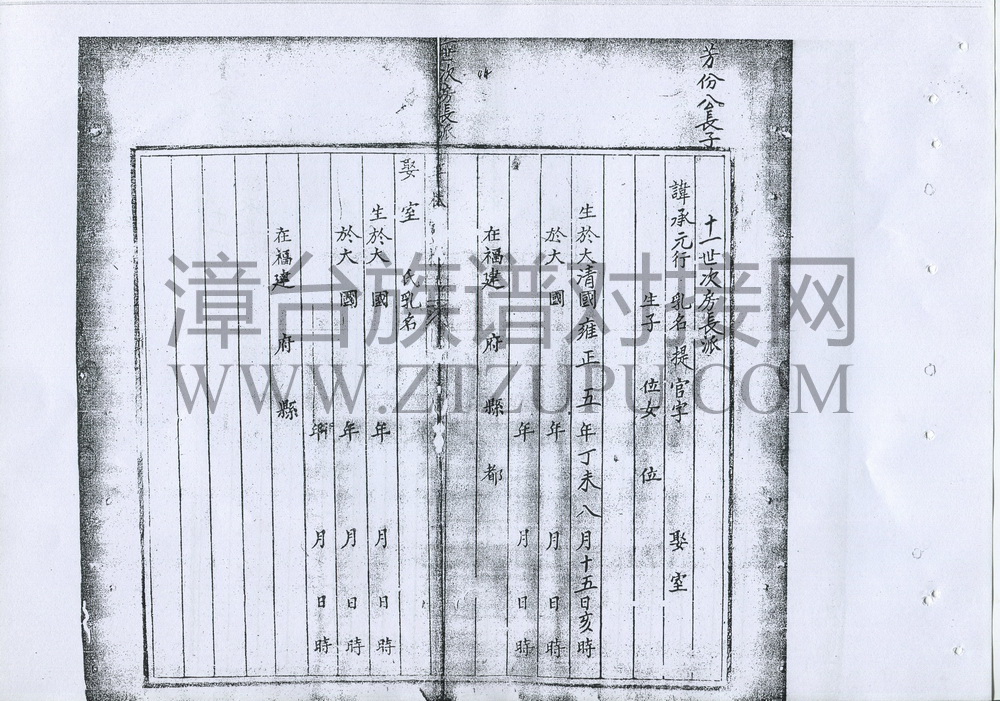 芳份公長子
十一世次房長派
諱承元行 乳名提 官字 娶室
生子 位女 位
生於大清國雍正五年丁未八月十五日亥時
於大 國 年 月 日 時
年 月 日 時
在福建 府 縣 都
世次房長派
娶室 氏乳名
生於大 國 年 月 日 時
於大 國 年 月 日 時
年 月 日 時
在福建 府 縣
漳台族谱对接网
WWW.ZTZUPU.COM